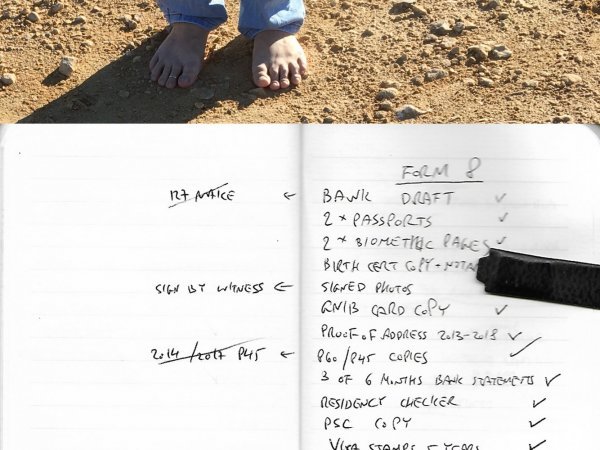 FORM 8
← BANK DRAFT ✓
2 × PASSPORTS ✓
2 × BIOMETRIC PAGES ✓
BIRTH CERT COPY +
SIGN BY WITNESS ← SIGNED PHOTOS
GNIB CARD COPY ✓
PROOF OF ADDRESS 2013-2018 ✓
2014 / 2017 P45 ← P60/P45 COPIES ✓
3 OF 6 MONTHS BANK STATEMENTS ✓
RESIDENCY CHECKER ✓
PSC COPY ✓
VISA STAMPS 5 YEARS ✓